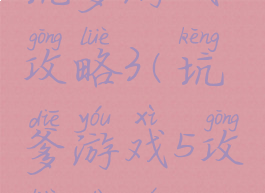 gōng lüè kēng
攻略3(坑
diē yóu xì gōng
爹游戏5攻